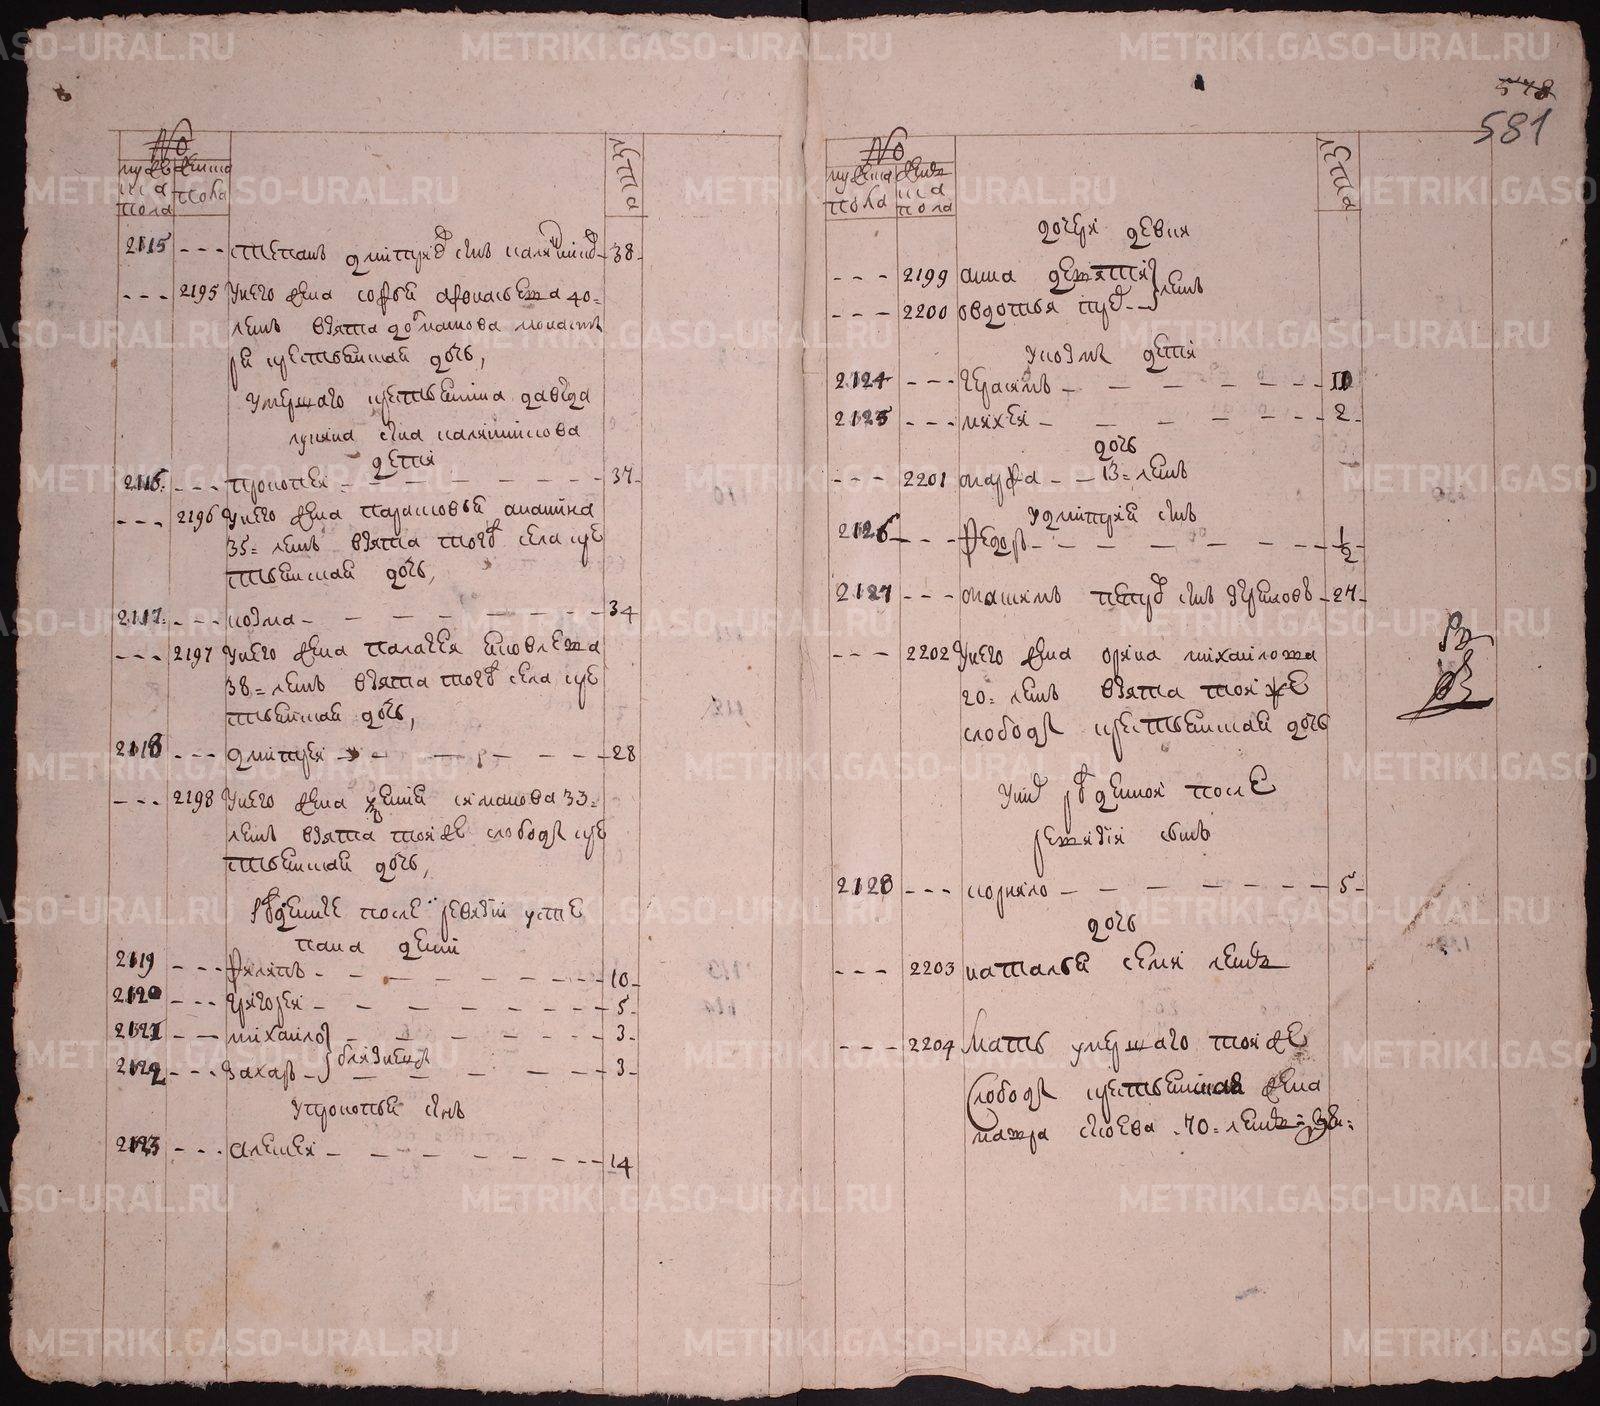 578
581
№
мужеска пола
женска пола
лета
2115 - - - степанъ дмитриевъ снъ калягинъ - 38 -
- - - 2195 у него жена софья афонасьевна 40 =
летъ взята романова
крестьянская дочь,
умершаго крестьянина давыда
лукина сына калягинова
дети
2116 - - - прокопеи - - - - - - 37 -
- - - 2196 у него жена парасковья ананина
35 = летъ взята тогожъ села кре
стьянская дочь,
2117 - - - козма - - - - - - 34
- - - 2197 у него жена палагея яковлевна
38 = летъ взята тогожъ села кре
стьянская дочь,
2118 - - - дмитреи - - - - - - 28
- - - 2198 у него жена симанова 33 =
летъ взята тоя же слободы кре
стьянская дочь,
рожденные после ревизии у сте
пана дети
2119 - - - филипъ - - - - - - 10 -
2120 - - - григореи - - - - - - 5 -
2121 - - михаило - - - - - - 3 -
близнецы
2122 - - - захаръ - - - - - - 3 -
у прокопья снъ
2123 - - - алексеи - - - - - - 14
№
мужеска пола
женска пола
лета
дочери девки
- - - 2199 анна девяти
летъ
- - - 2200 овдотья трехъ - -
у козмы дети
2124 - - - герасимъ - - - - - - 11
2125 - - - михеи - - - - - - 2 -
дочь
- - - 2201 марфа - - 13 = летъ
у дмитрия снъ
2126 - - - федоръ - - - - - - 1/2 -
2127 - - - максимъ петровъ снъ - 27 -
- - - 2202 у него жена орина михаилова
20 = летъ взята тоя же
слободы крестьянская дочь
у них рожденной после
ревизии сынъ
2128 - - - корнило - - - - - - 5 -
дочь
- - - 2203 наталья семи летъ
- - - 2204 мать умершаго тоя же
слободы крестьянина жена
марфа 70 = летъ